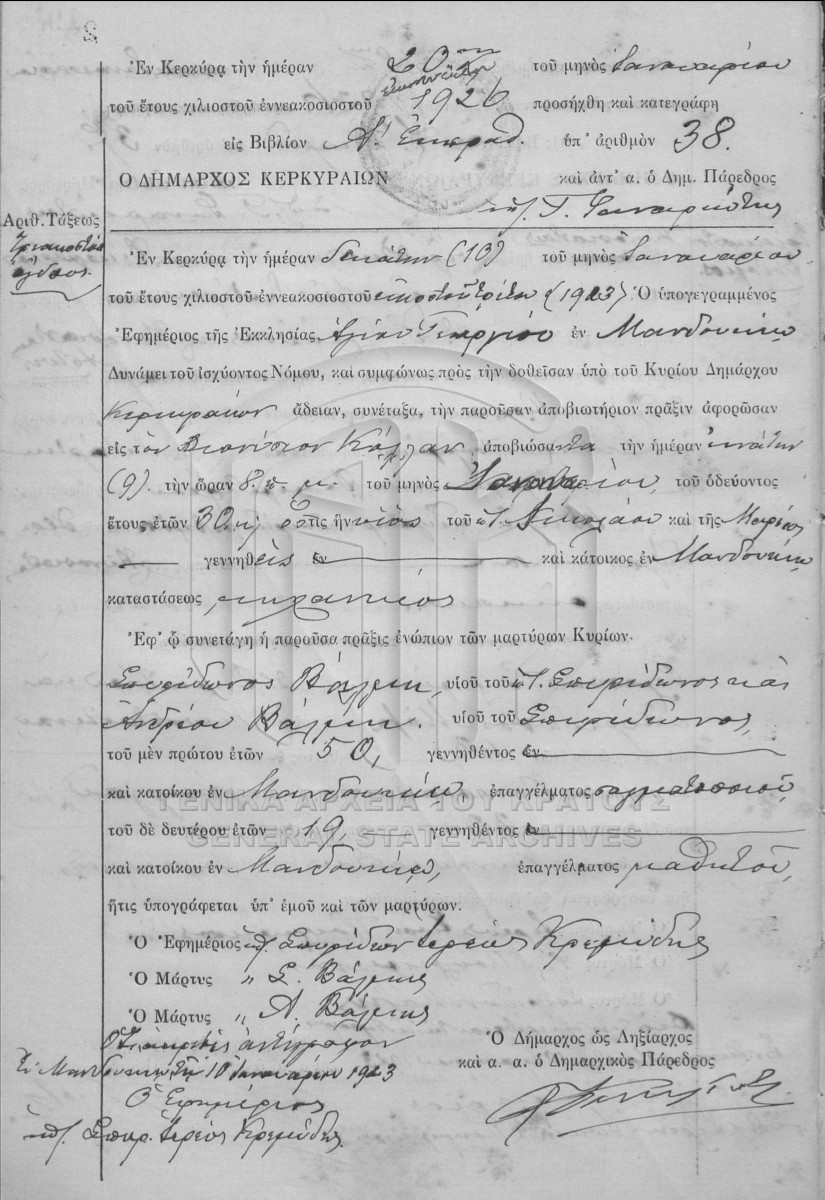 Ἐν Κερκύρᾳ τὴν ἡμέραν 20ην τοῦ μηνὸς Ἰανουαρίου
εἰκοστὴν
τοῦ ἔτους χιλιοστοῦ ἐννεακοσιοστοῦ 1926 προσήχθη καὶ κατεγράφη
εἰς Βιβλίον Α! ὑπ' ἀριθμὸν 38.
Ο ΔΗΜΑΡΧΟΣ ΚΕΡΚΥΡΑΙΩΝ καὶ ἀντ' α. ὁ Δημ. Πάρεδρος
Ἀριθ. Τάξεως
Τριακοστὸς
ὄγδοος.
Ἐν Κερκύρᾳ τὴν ἡμέραν δεκάτην (10) τοῦ μηνὸς Ἰανουαρίου
τοῦ ἔτους χιλιοστοῦ ἐννεακοσιοστοῦ εἰκοστοῦ τρίτου (1923) Ὁ ὑπογεγραμμένος
Ἐφημέριος τῆς Ἐκκλησίας Ἁγίου Γεωργίου ἐν Μανδουκίῳ
Δυνάμει τοῦ ἰσχύοντος Νόμου, καὶ συμφώνως πρὸς τὴν δοθεῖσαν ὑπὸ τοῦ Κυρίου Δημάρχου
Κερκυραίων ἄδειαν, συνέταξα, τὴν παροῦσαν ἀποβιωτήριον πρᾶξιν ἀφορῶσαν
εἰς τὸν Διονύσιον Κόλλαν ἀποβιώσαντα τὴν ἡμέραν ἐνάτην
(9) τὴν ὥραν 8 π. μ. τοῦ μηνὸς Ἰανουαρίου, τοῦ ὁδεύοντος
ἔτους ἐτῶν 30 Ὅστις ἦν υἱὸς τοῦ Νικολάου καὶ τῆς Μαρίας
γεννηθεὶς ἐν καὶ κάτοικος ἐν Μανδουκίῳ
καταστάσεως, μηχανικός
Ἐφ' ᾧ συνετάγη ἡ παροῦσα πρᾶξις ἐνώπιον τῶν μαρτύρων Κυρίων.
Σπυρίδωνος Βάλμη, υἱοῦ τοῦ Σπυρίδωνος καὶ
Ἀνδρέου Βάλμη. υἱοῦ τοῦ Σπυρίδωνος,
τοῦ μὲν πρώτου ἐτῶν 50, γεννηθέντος ἐν
καὶ κατοίκου ἐν Μανδουκίῳ, ἐπαγγέλματος σαγματοποιοῦ,
ΓΕΝΙΚΑ ΑΡΧΕΙΑ ΤΟΥ ΚΡΑΤΟΥΣ
τοῦ δὲ δευτέρου ἐτῶν 19, γεννηθέντος ἐν
GENERAL STATE ARCHIVES
καὶ κατοίκου ἐν Μανδουκίῳ, ἐπαγγέλματος μαθητοῦ,
ἥτις ὑπογράφεται ὑπ' ἐμοῦ καὶ τῶν μαρτύρων.
Ὁ Ἐφημέριος Σπυρίδων ἱερεὺς Κρεμύδης
Ὁ Μάρτυς " Σ. Βάλμης
Ὁ Μάρτυς " Α. Βάλμης
ἀκριβὲς ἀντίγραφον
Ἐν Μανδουκίῳ τῇ 10 Ἰανουαρίου 1923
Ὁ Ἐφημέριος
Σπυρ. Ἱερεὺς Κρεμύδης.
Ὁ Δήμαρχος ὡς Ληξίαρχος
καὶ α. α. ὁ Δημαρχικὸς Πάρεδρος